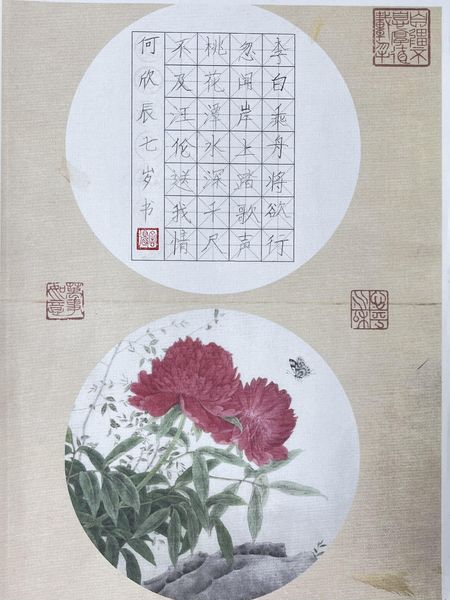 李白乘舟将欲行
忽闻岸上踏歌声
桃花潭水深千尺
不及汪伦送我情
何欣辰七岁书
万事如意